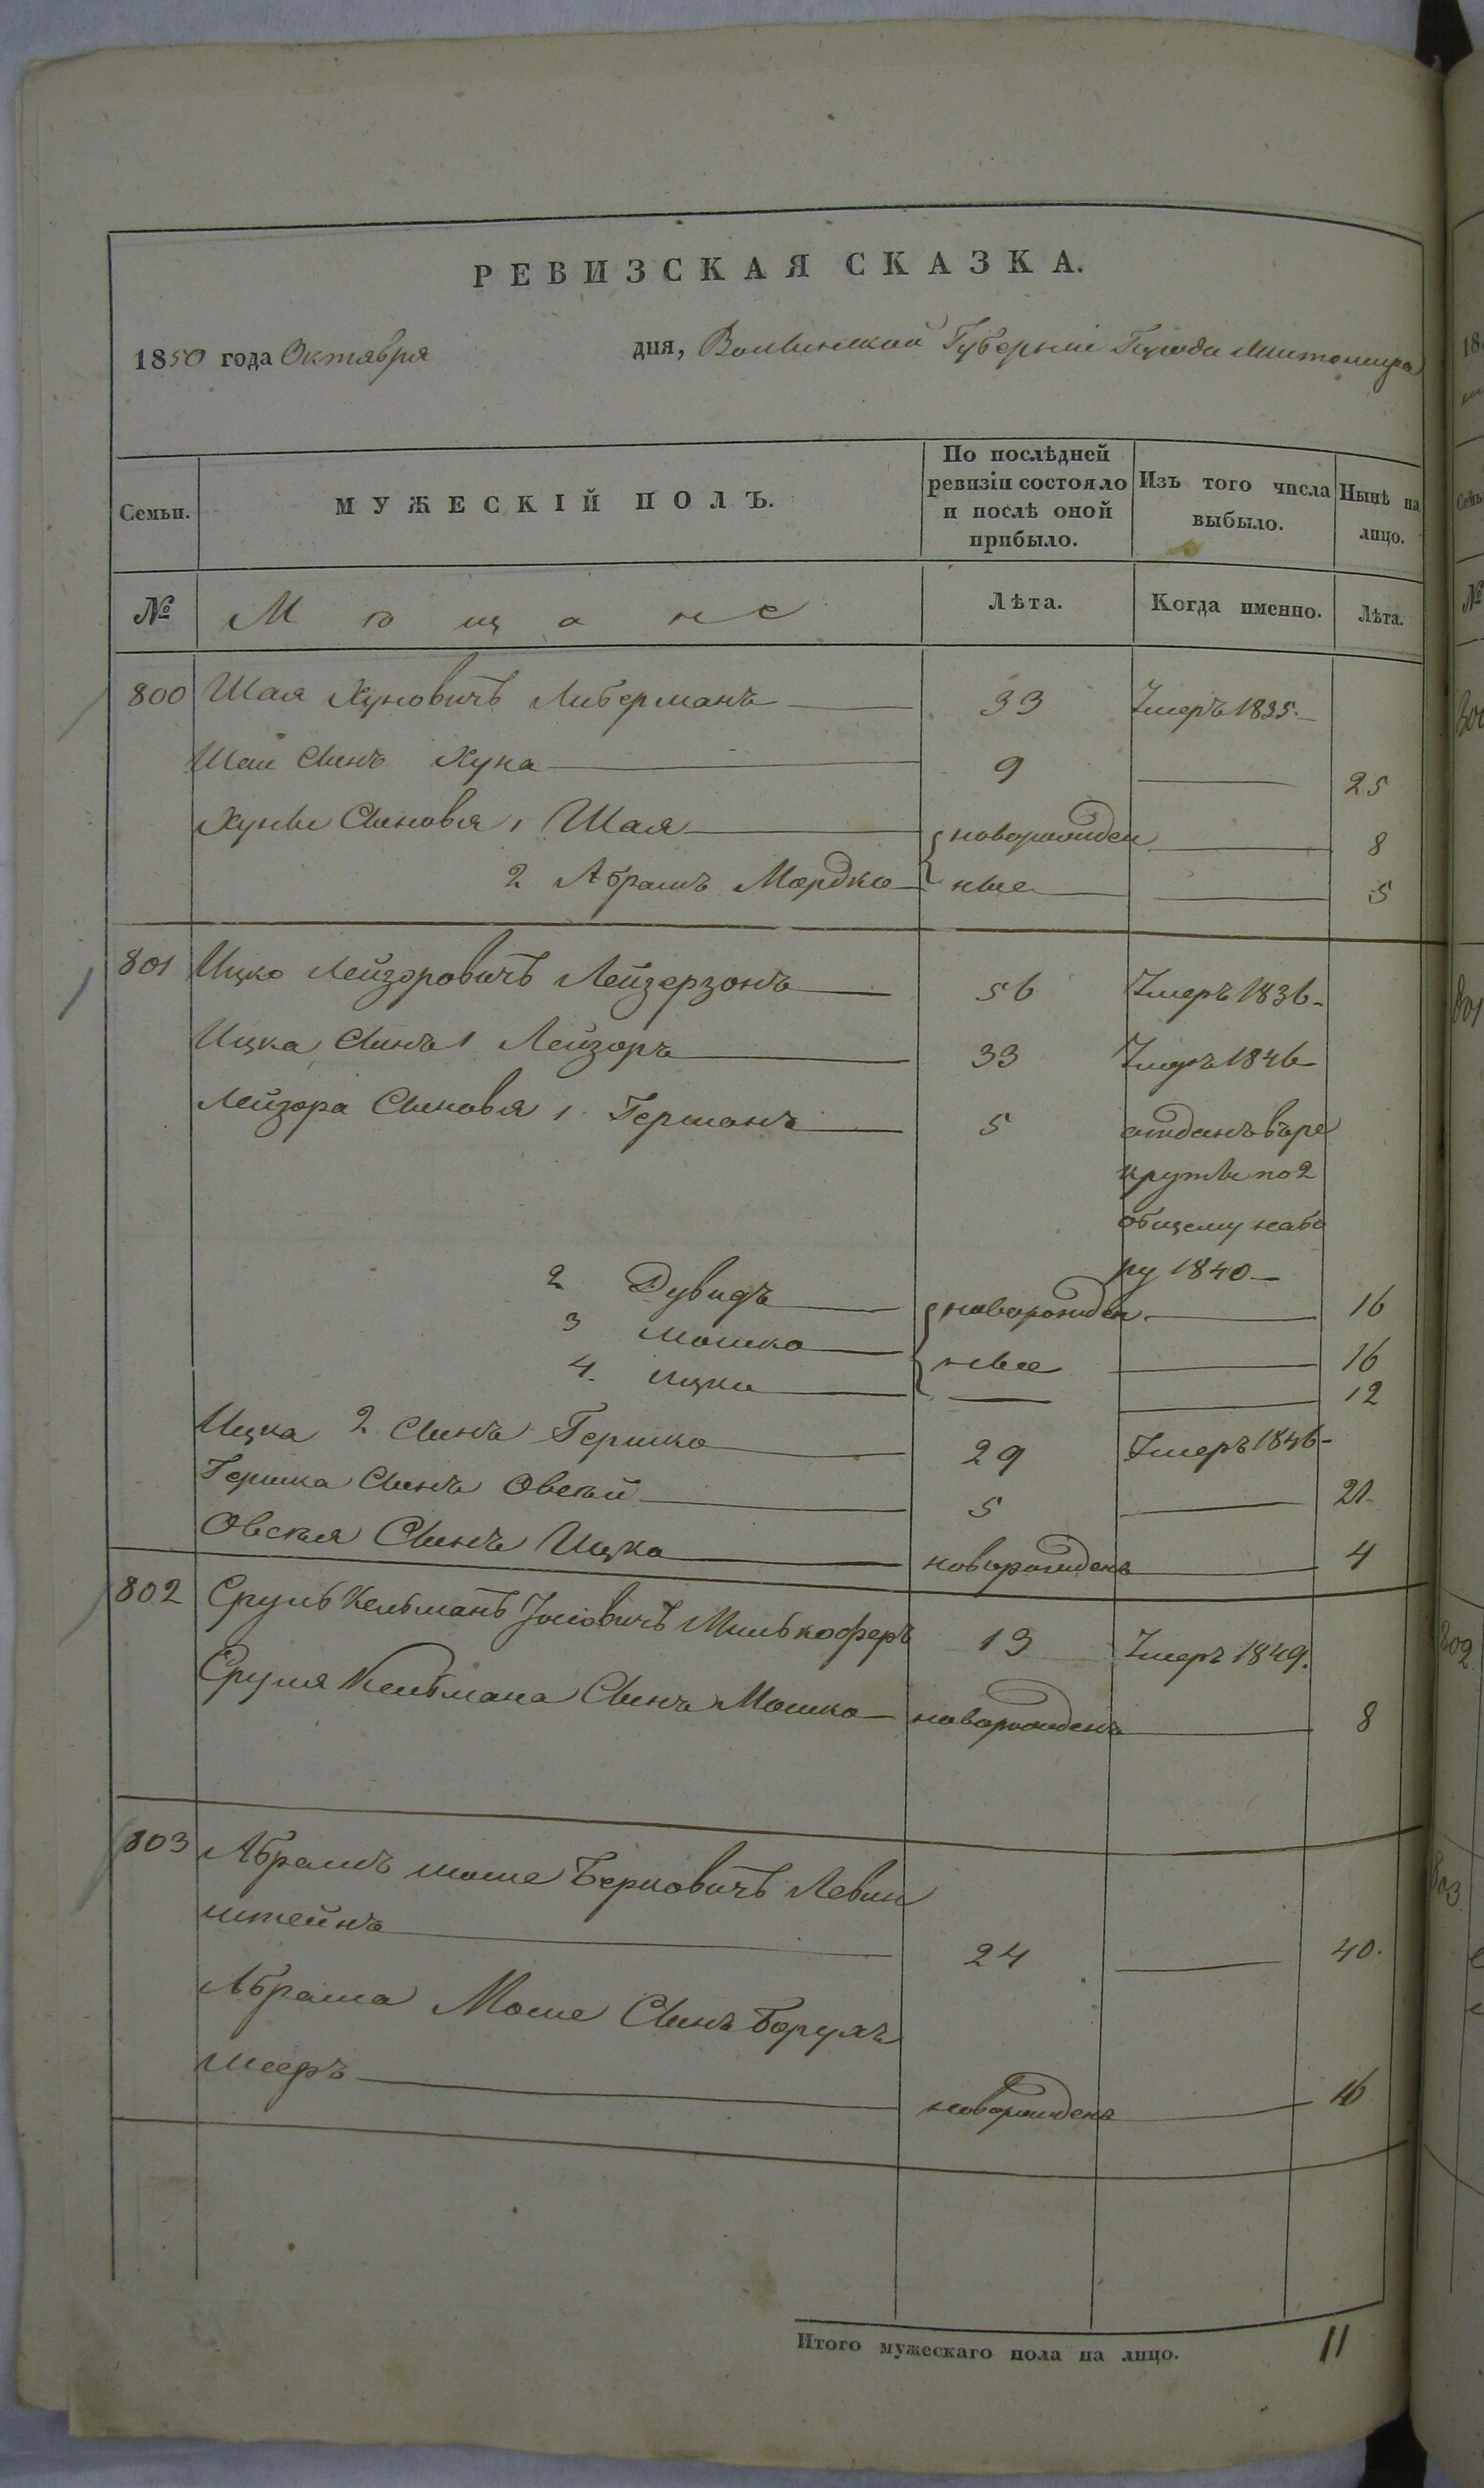 РЕВИЗСКАЯ СКАЗКА.
1850 года Октября дня, Волынской Губерніи Города Житомира
Семьи. МУЖЕСКІЙ ПОЛЪ. По послѣдней ревизіи состояло и послѣ оной прибыло. Изъ того числа выбыло. Нынѣ на лицо.
№ Мѣщане Лѣта. Когда именно. Лѣта.
800 Шая Хуновичъ Либерманъ 33 Умеръ 1835.
Шаи Сынъ Хуна 9 25
Хуны Сыновья 1 Шая новорожден 8
2 Абрамъ Мордко ные 5
801 Ицко Лейзоровичъ Лейзерзонъ 56 Умеръ 1836
Ицка Сынъ 1 Лейзоръ 33 Умеръ 1846
Лейзора Сыновья 1 Гершонъ 5 отданъ въ ре
круты по 2
общему набо
ру 1840
2 Дувидъ новорожден 16
3 Мошко ные 16
4. Ицко 12
Ицка 2 Сынъ Гершко 29 Умеръ 1846
Гершка Сынъ Овсѣй 5 21
Овсѣя Сынъ Ицко новорожденъ 4
802 Сруль Кельманъ Іосіовичъ Милькоферъ 13 Умеръ 1849.
Сруля Кельмана Сынъ Мошко новорожденъ 8
803 Абрамъ Моше Берковичъ Левин
штейнъ 24 40.
Абрама Моше Сынъ Борухъ
Мееръ новорожденъ 16
Итого мужескаго пола на лицо. 11
18
№
801
802
803